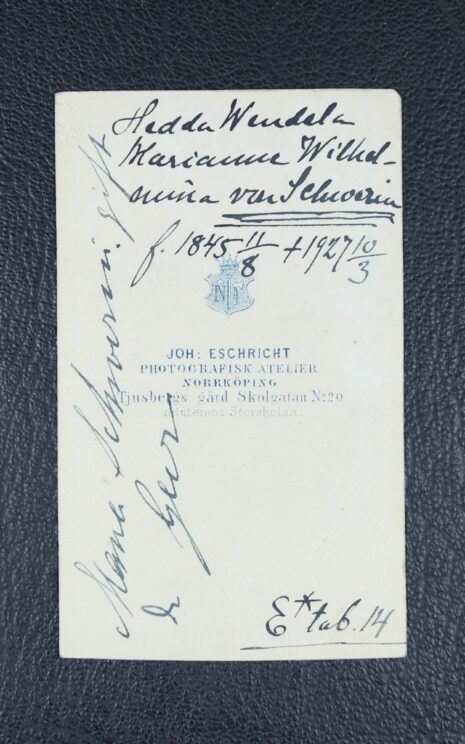 Hedda Wendela
Marianne Wilhel-
mina von Schwerin
f. 1845 11/8 † 1927 10/3
JOH: ESCHRICHT
PHOTOGRAFISK ATELIER
NORRKÖPING
Tjusbergs gård Skolgatan No 20
midtemot Storskolan.
Mana Schwerin, gift
de Geer
E* tab. 14